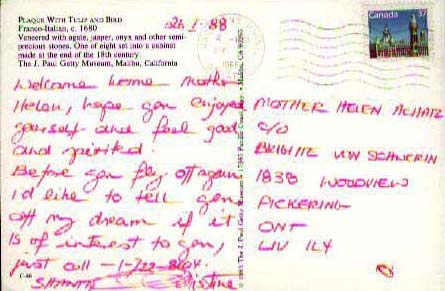 PLAQUE WITH TULIP AND BIRD
Franco-Italian, c. 1680
Veneered with agate, jasper, onyx and other semi-
precious stones. One of eight set into a cabinet
made at the end of the 18th century.
The J. Paul Getty Museum, Malibu, California
26 1. 88
Canada
37
Welcome home Mother
Helen, hope you enjoyed
yourself and feel good
and spirited!
Before you fly off again
i'd like to tell you
off my dream if it
is of interest to you,
just call -1-722-
MOTHER HELEN
C/O
BRIGITTE VON SCHWERIN
1838 WOODVIEW
PICKERING
ONT
L1V 1L4
© 1985 The J. Paul Getty Museum
Malibu, CA 90265